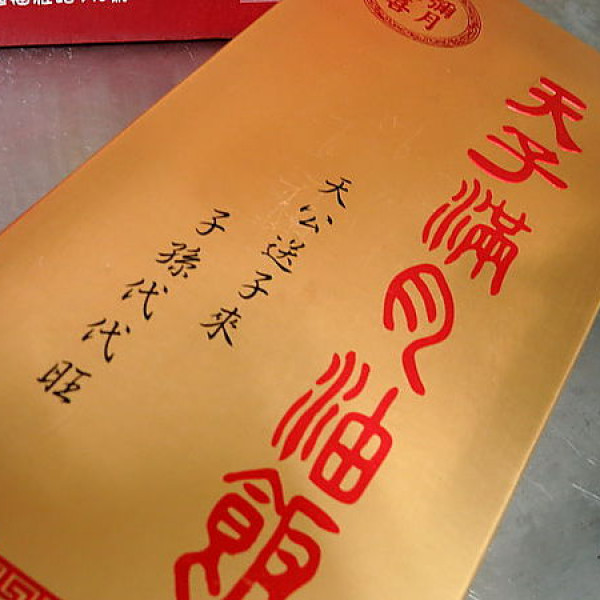 天子滿月油飯
天公送子來
子孫代代旺
彌月